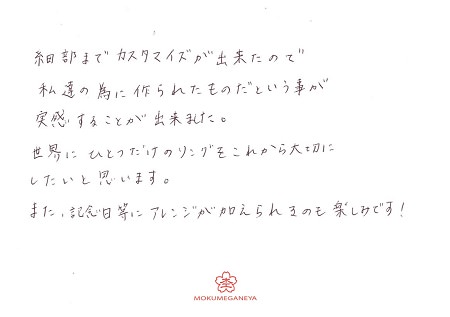 細部までカスタマイズが出来たので
私達の為に作られたものだという事が
実感することが出来ました。
世界にひとつだけのリングをこれから大切に
したいと思います。
また、記念日等にアレンジが加えられるのも楽しみです!
MOKUMEGANEYA